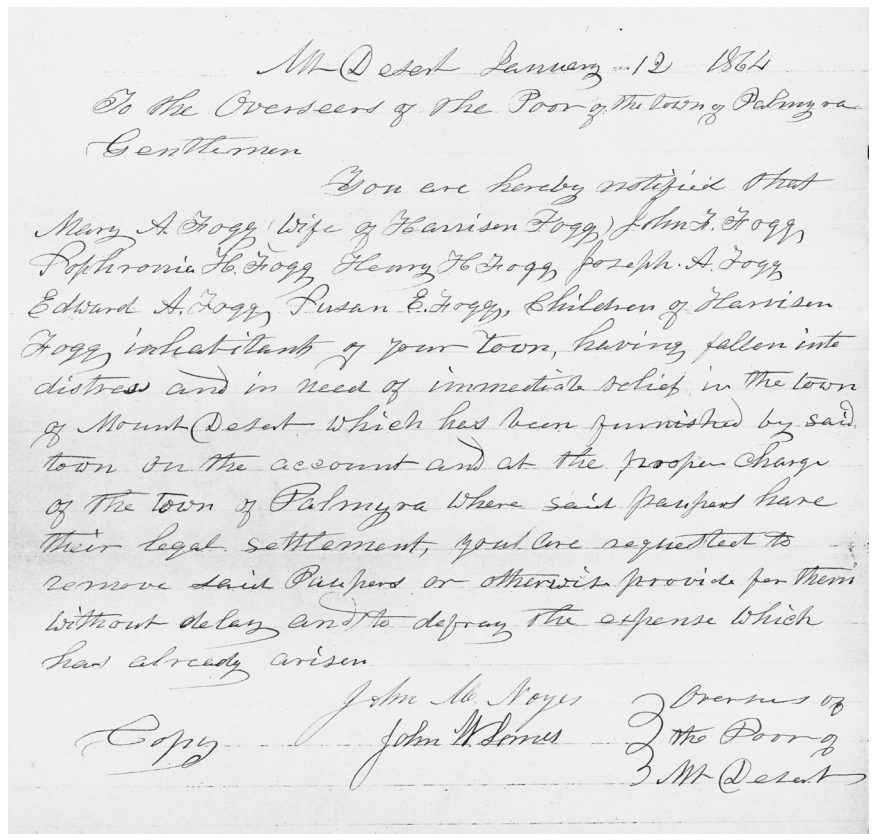 Mt Desert January 12 1864
To the Overseers of the Poor of the town of Palmyra
Gentlemen
You are hereby notified that
Mary A. Fogg (Wife of Harrison Fogg) John F. Fogg,
Sophronia H. Fogg, Henry H Fogg, Joseph. A. Fogg
Edward A. Fogg, Susan E. Fogg, Children of Harrison
Fogg, inhabitants of your Town, having fallen into
distress and in need of immediate relief in the town
of Mount Desert which has been furnished by said
town on the account and at the proper charge
of the town of Palmyra where said paupers have
their legal settlement, you are requested to
remove said Paupers or otherwise provide for them
without delay and to defray the expense which
has already arisen
John M. Noyes } Overseers of
Copy John W. Somes } the Poor of
} Mt Desert